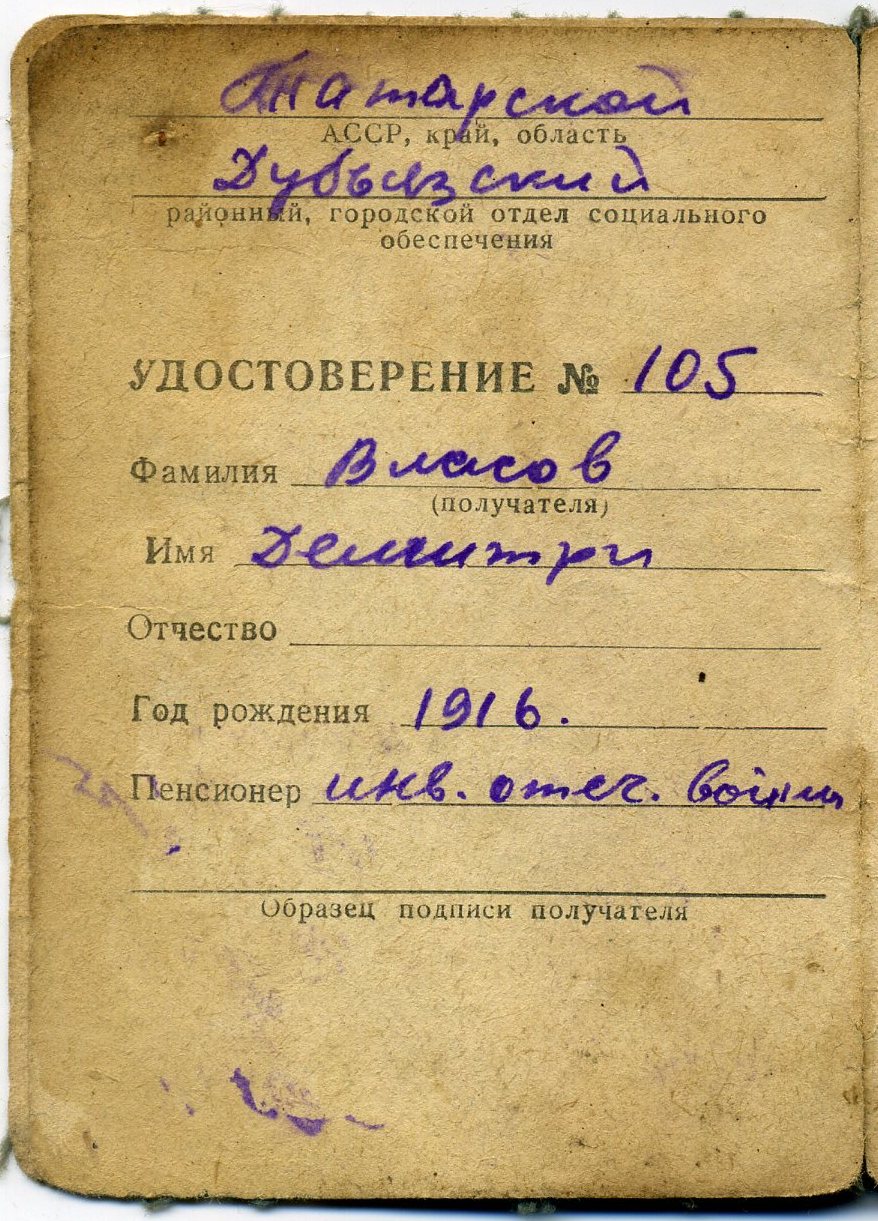 Татарской
АССР, край, область
Дубьязский
районный, городской отдел социального
обеспечения
УДОСТОВЕРЕНИЕ № 105
Фамилия Власов
(получателя)
Имя Демитри
Отчество
Год рождения 1916.
Пенсионер инв. отеч. войны
Образец подписи получателя